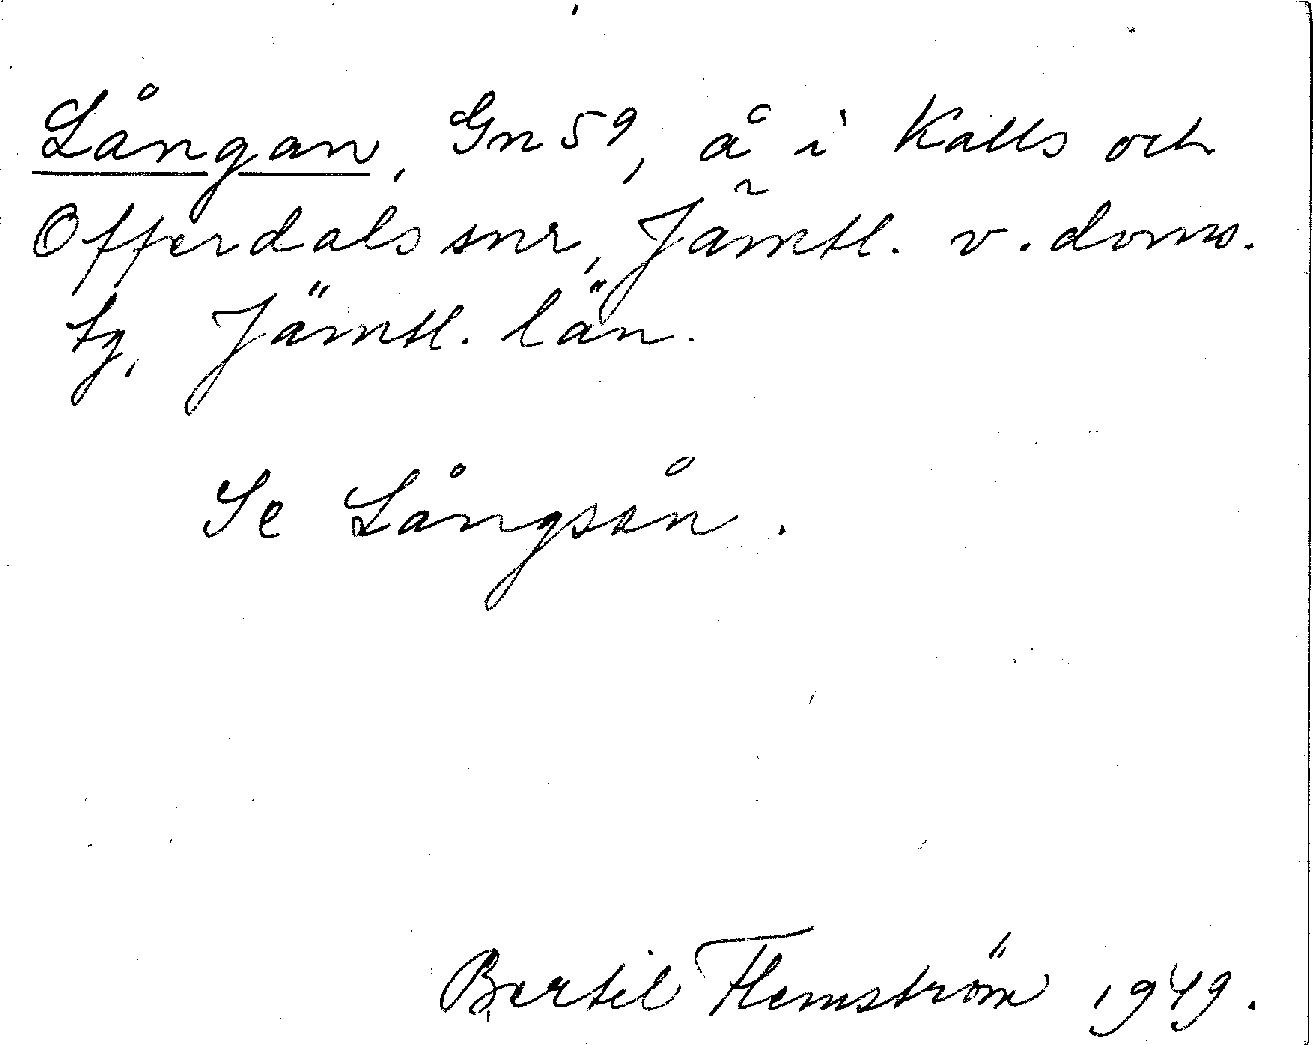 Långan, Gn 59, å i Kalls och
Offerdals snr, Jämtl. v. doms.
tg, Jämtl. län.
Se Långsån.
Bertil Flemström 1949.